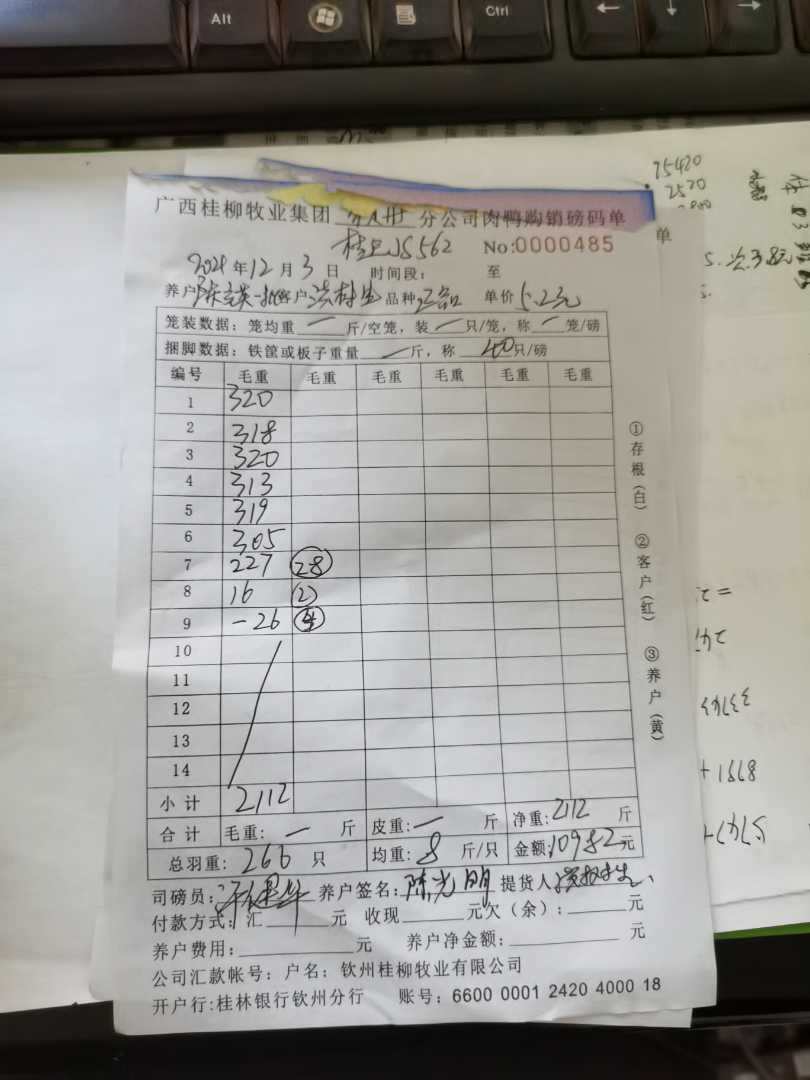 Alt
Ctrl
广西桂柳牧业集团 分公司肉鸭购销磅码单
No:0000485
2021年12月3日 时间段: 至
养户 客户 品种正品 单价5.2元
笼装数据: 笼均重 一 斤/空笼, 装 一 只/笼, 称 一 笼/磅
捆脚数据: 铁筐或板子重量 一 斤, 称 40只/磅
编号 毛重 毛重 毛重 毛重 毛重 毛重
1 320
2 318
3 320
4 313
5 319
6 305
7 227 28
8 16 2
9 -26 4
10
11
12
13
14
小计 2112
合计 毛重: 一 斤 皮重: 一 斤 净重: 2112 斤
总羽重: 266 只 均重: 8 斤/只 金额: 10982元
司磅员: 养户签名: 陈光明 提货人
付款方式: 汇 元 收现 元欠(余): 元
养户费用: 元 养户净金额: 元
公司汇款帐号: 户名: 钦州桂柳牧业有限公司
开户行:桂林银行钦州分行 账号: 6600 0001 2420 4000 18
①存根(白) ②客户(红) ③养户(黄)
75420
2520
单